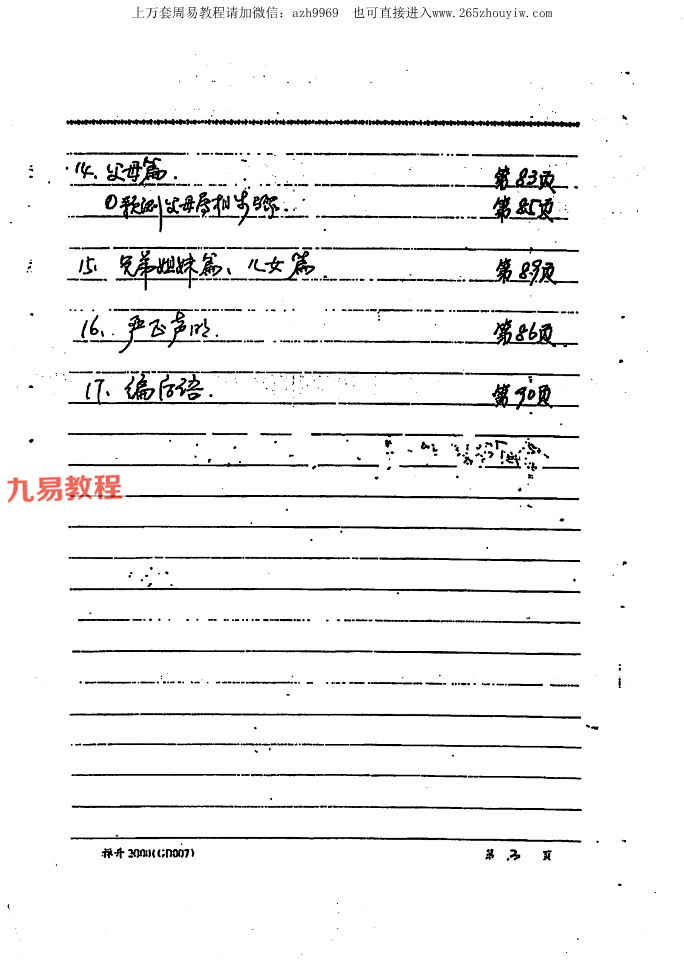 上万套周易教程请加微信：azh9969　也可直接进入www.265zhouyiw.com
14、父母篇. 第83页
①预测父母属相步骤. 第85页
15、兄弟姐妹篇、儿女篇. 第89页
16、严正声明. 第86页
17、编后语. 第90页
九易教程
2000(GD007) 第 3 页